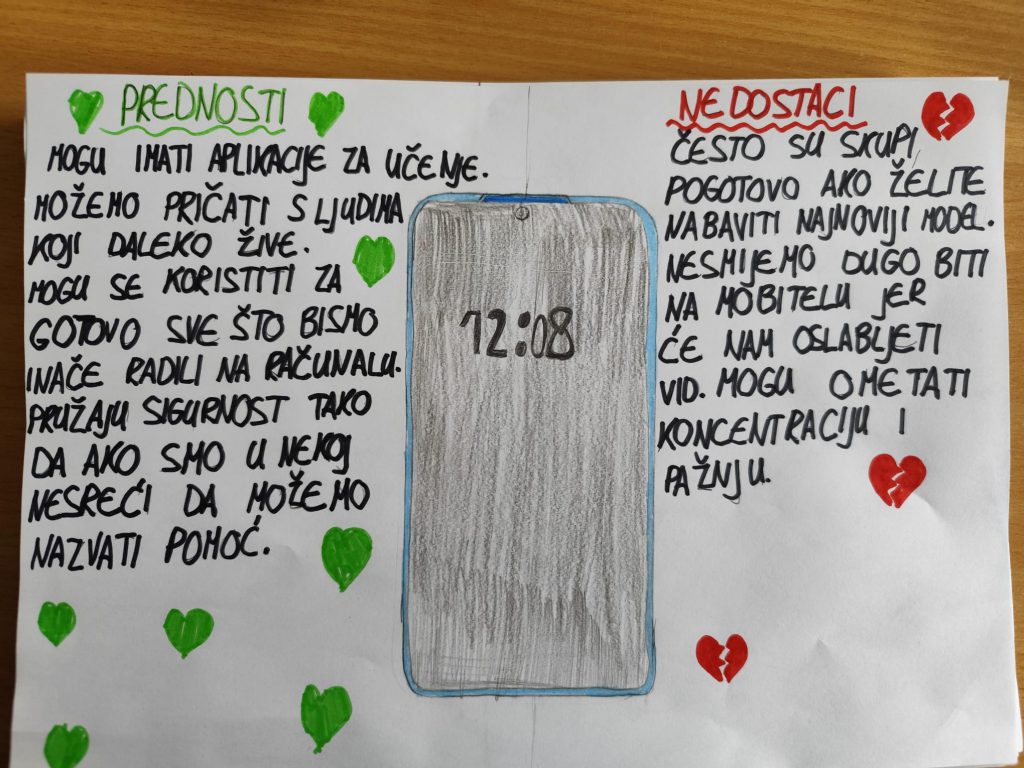 PREDNOSTI
MOGU IMATI APLIKACIJE ZA UČENJE.
MOŽEMO PRIČATI S LJUDIMA
KOJI DALEKO ŽIVE.
MOGU SE KORISTITI ZA
GOTOVO SVE ŠTO BISMO
INAČE RADILI NA RAČUNALU.
PRUŽAJU SIGURNOST TAKO
DA AKO SMO U NEKOJ
NESREĆI DA MOŽEMO
NAZVATI POMOĆ.
12:08
NEDOSTACI
ČESTO SU SKUPI,
POGOTOVO AKO ŽELITE
NABAVITI NAJNOVIJI MODEL.
NESMIJEMO DUGO BITI
NA MOBITELU JER
ĆE NAM OSLABLJETI
VID. MOGU OMETATI
KONCENTRACIJU I
PAŽNJU.